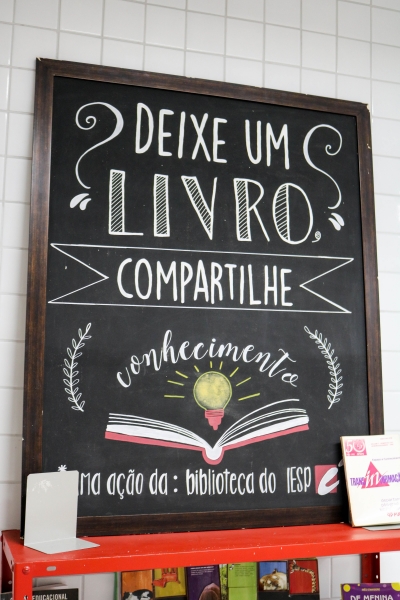 DEIXE UM
LIVRO,
COMPARTILHE
conhecimento
ma ação da: biblioteca do IESP
DE MENINA